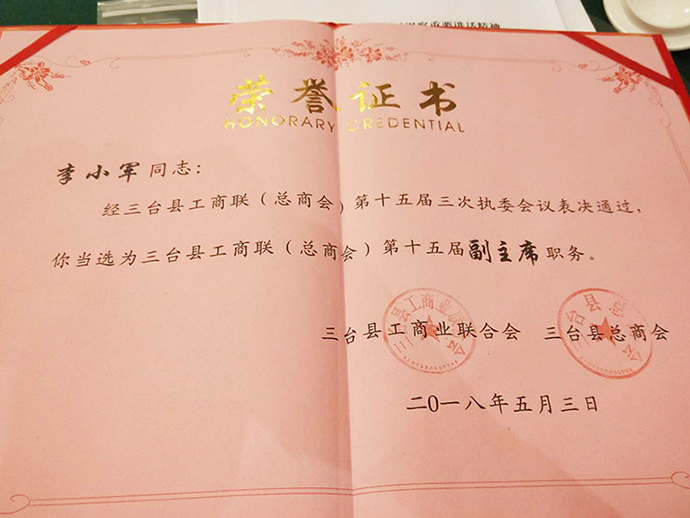 荣誉证书
HONORARY CREDENTIAL
李小军同志：
经三台县工商联（总商会）第十五届三次执委会议表决通过，
你当选为三台县工商联（总商会）第十五届副主席职务。
三台县工商业联合会 三台县总商会
二0一八年五月三日